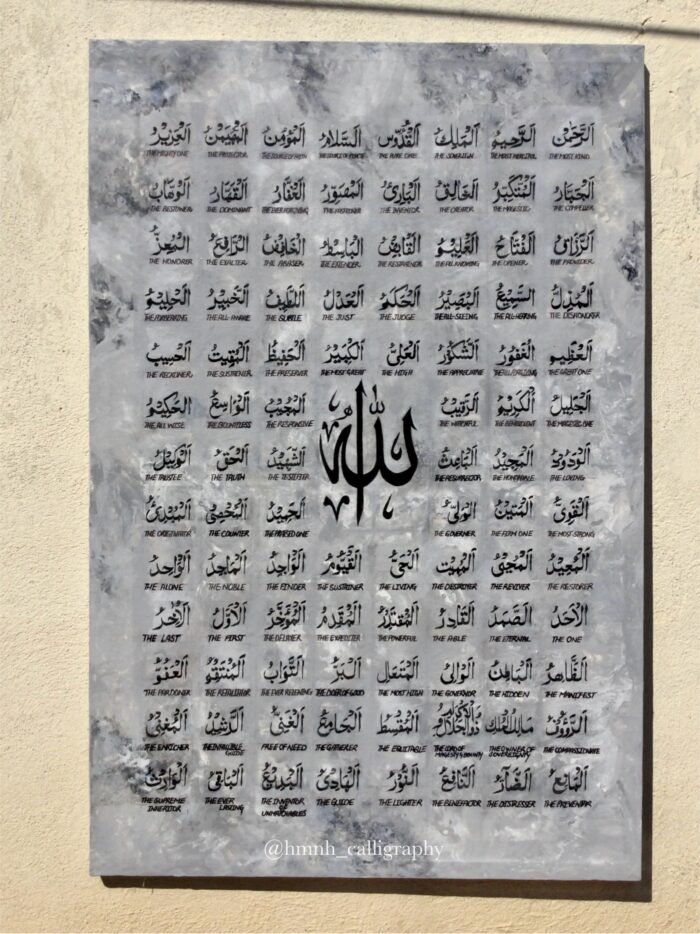 اَلرَّحْمٰنُ اَلرَّحِيْمُ اَلْمَالِكُ اَلْقُدُّوْسُ اَلسَّلَامُ اَلْمُؤْمِنُ اَلْمُهَيْمِنُ اَلْعَزِيْزُ
THE MOST KIND THE MOST MERCIFUL THE SOVEREIGN THE PURE ONE THE SOURCE OF PEACE THE SOURCE OF FAITH THE PROTECTOR THE MIGHTY ONE
اَلْجَبَّارُ اَلْمُتَكَبِّرُ اَلْخَالِقُ اَلْبَارِئُ اَلْمُصَوِّرُ اَلْغَفَّارُ اَلْقَهَّارُ اَلْوَهَّابُ
THE COMPELLER THE MAGESTIC THE CREATOR THE INVENTOR THE FASHIONER THE EVER FORGIVING THE DOMINANT THE BESTOWER
اَلرَّزَّاقُ اَلْفَتَّاحُ اَلْعَلِيْمُ اَلْقَابِضُ اَلْبَاسِطُ اَلْخَافِضُ اَلرَّافِعُ اَلْمُعِزُّ
THE PROVIDER THE OPENER THE ALL KNOWING THE RESTRAINER THE EXTENDER THE ABASER THE EXALTER THE HONORER
اَلْمُذِلُّ اَلسَّمِيْعُ اَلْبَصِيْرُ اَلْحَكَمُ اَلْعَدْلُ اَللَّطِيْفُ اَلْخَبِيْرُ اَلْحَلِيْمُ
THE DISHONORER THE ALL-HEARING THE ALL-SEEING THE JUDGE THE JUST THE SUBTLE THE ALL-AWARE THE FORBEARING
اَلْعَظِيْمُ اَلْغَفُوْرُ اَلشَّكُوْرُ اَلْعَلِيُّ اَلْكَبِيْرُ اَلْحَفِيْظُ اَلْمُقِيْتُ اَلْحَسِيْبُ
THE GREAT ONE THE ALL FORGIVING THE APPRECIATIVE THE HIGH THE MOST GREAT THE PRESERVER THE SUSTAINER THE RECKONER
اَلْجَلِيْلُ اَلْكَرِيْمُ اَلرَّقِيْبُ اَلْمُجِيْبُ اَلْوَاسِعُ اَلْحَكِيْمُ
THE MAGESTIC ONE THE BENEVOLENT THE WATCHFUL THE RESPONSIVE THE BOUNTLESS THE ALL WISE
الله
اَلْوَدُوْدُ اَلْمَجِيْدُ اَلْبَاعِثُ اَلشَّهِيْدُ اَلْحَقُّ اَلْوَكِيْلُ
THE LOVING THE HONORABLE THE RESURRECTOR THE TESTIFIER THE TRUTH THE TRUSTEE
اَلْقَوِيُّ اَلْمَتِيْنُ اَلْوَلِيُّ اَلْحَمِيْدُ اَلْمُحْصِيْ اَلْمُبْدِئُ
THE MOST STRONG THE FIRM ONE THE GOVERNER THE PRAISED ONE THE COUNTER THE ORIGINATOR
اَلْمُعِيْدُ اَلْمُحْيِيْ اَلْمُمِيْتُ اَلْحَيُّ اَلْقَيُّوْمُ اَلْوَاجِدُ اَلْمَاجِدُ اَلْوَاحِدُ
THE RESTORER THE REVIVER THE DESTROYER THE LIVING THE SUSTAINER THE FINDER THE NOBLE THE ALONE
اَلْاَحَدُ اَلصَّمَدُ اَلْقَادِرُ اَلْمُقْتَدِرُ اَلْمُقَدِّمُ اَلْمُؤَخِّرُ اَلْاَوَّلُ اَلْآخِرُ
THE ONE THE ETERNAL THE ABLE THE POWERFUL THE EXPEDITER THE DELAYER THE FIRST THE LAST
اَلظَّاهِرُ اَلْبَاطِنُ اَلْوَالِيْ اَلْمُتَعَالِ اَلْبَرُّ اَلتَّوَّابُ اَلْمُنْتَقِمُ اَلْعَفُوُّ
THE MANIFEST THE HIDDEN THE GOVERNOR THE MOST HIGH THE DOER OF GOOD THE EVER RELENTING THE RETALIATOR THE PARDONER
اَلرَّؤُوْفُ مَالِكُ الْمُلْكِ ذُوالْجَلَالِ وَالْاِكْرَامِ اَلْمُقْسِطُ اَلْجَامِعُ اَلْغَنِيُّ اَلرَّشِيْدُ اَلْمُغْنِيْ
THE COMPASSIONATE THE OWNER OF SOVEREIGNTY THE LORD OF MAGESTY & BOUNTY THE EQUITABLE THE GATHERER FREE OF NEED THE INFALLIBLE GUIDE THE ENRICHER
اَلْمَانِعُ اَلضَّارُّ اَلنَّافِعُ اَلنُّوْرُ اَلْهَادِيْ اَلْبَدِيْعُ اَلْبَاقِيْ اَلْوَارِثُ
THE PREVENTAR THE DISTRESSER THE BENEFACTOR THE LIGHTER THE GUIDE THE INVENTOR OF UNMATCHABLES THE EVER LASTING THE SUPREME INHERITOR
@hmnh_calligraphy